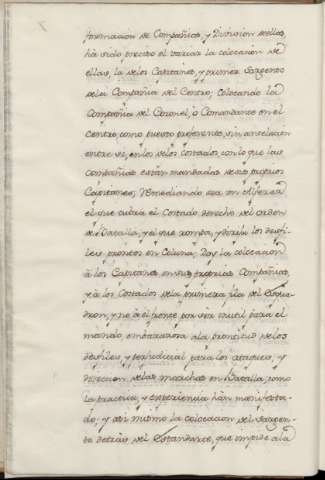 formacion de Compañias, y Division dellas,
hà sido preciso el variar la colocacion de
ellas, la delos Capitanes, y primer Sargento
dela Compañia del Centro; Colocando la
Compañia del Coronel, o Comandante en el
Centro, como puesto preferente, sin antelacion
entre si, en los delos Costados, con lo que las
Compañias estàn mandadas de sus propios
Capitanes; Remediando era un Alferez
el que cubra el Costado derecho del orden
de Batalla, y el que rompa, y dirija los desfi-
leis prontos en Coluna; Doy la colocacion
à los Capitanes en sus proprias Compañias,
y à los Costados dela primera fila del Esqua-
dron, y no à el frente por ser inutil para el
mando, embarazosa ala prontitud delos
desfiles, y perjudicial para los ataques, y
direccion delas marchas en Batalla, como
la practica, y experiencia hàn manifesta-
do; y asi mismo la colocacion del Sargen-
to detràs del Estandarte, que impide ala